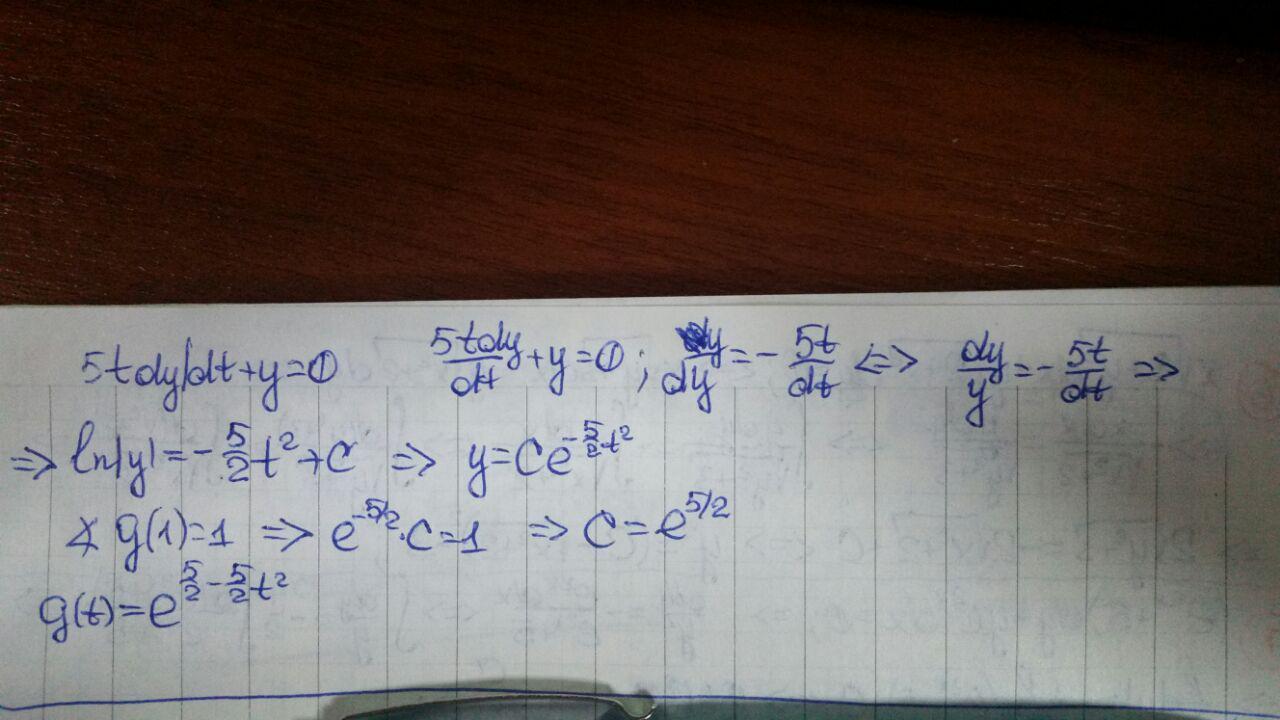 5t dy/dt + y = 0   5t dy/dt + y = 0 ; dy/dy = - 5t/dt <=> dy/y = - 5t/dt =>
=> ln|y| = - 5/2 t² + C => y = C e^(-5/2 t²)
∡ y(1) = 1 => e^(-5/2) · C = 1 => C = e^(5/2)
y(t) = e^(5/2 - 5/2 t²)